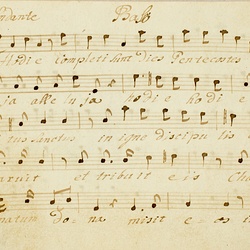 ndante Basso
Hodie completi sunt dies Pentecostes
ja alle lu ja hodie hodi
tus sanctus in igne discipu lis
paruit et tribuit eis Cha
matum Do na misit e os in